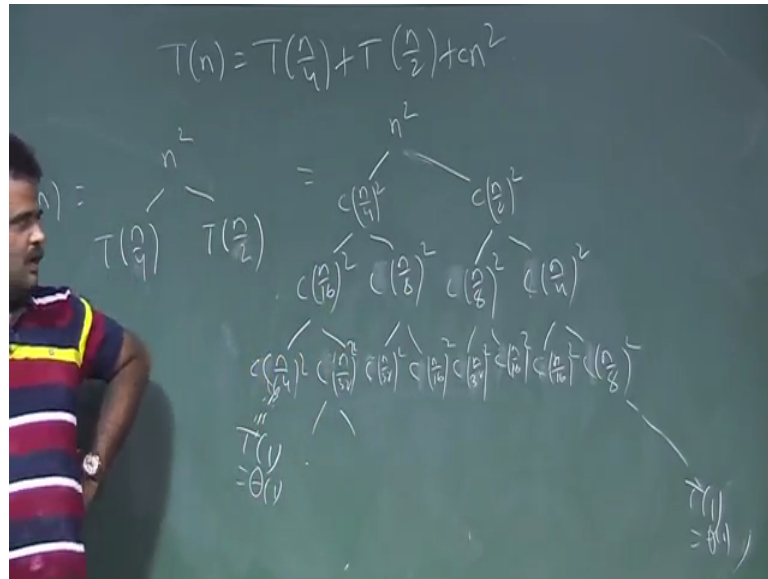 T(n) = T(n/4) + T(n/2) + cn²
n²
n) =
T(n/4) T(n/2)
=
n²
c(n/4)² c(n/2)²
c(n/16)² c(n/8)² c(n/8)² c(n/4)²
c(n/64)² c(n/32)² c(n/32)² c(n/16)² c(n/32)² c(n/16)² c(n/16)² c(n/8)²
T(1)
= Θ(1)
T(1)
= Θ(1)